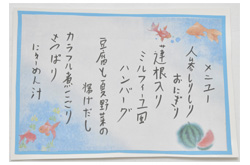 メニュー
人参しりしり
おにぎり
蓮根入り
ミルフィーユ風
ハンバーグ
豆腐と夏野菜の
揚げだし
カラフル煮こごり
さっぱり
にゅうめん汁